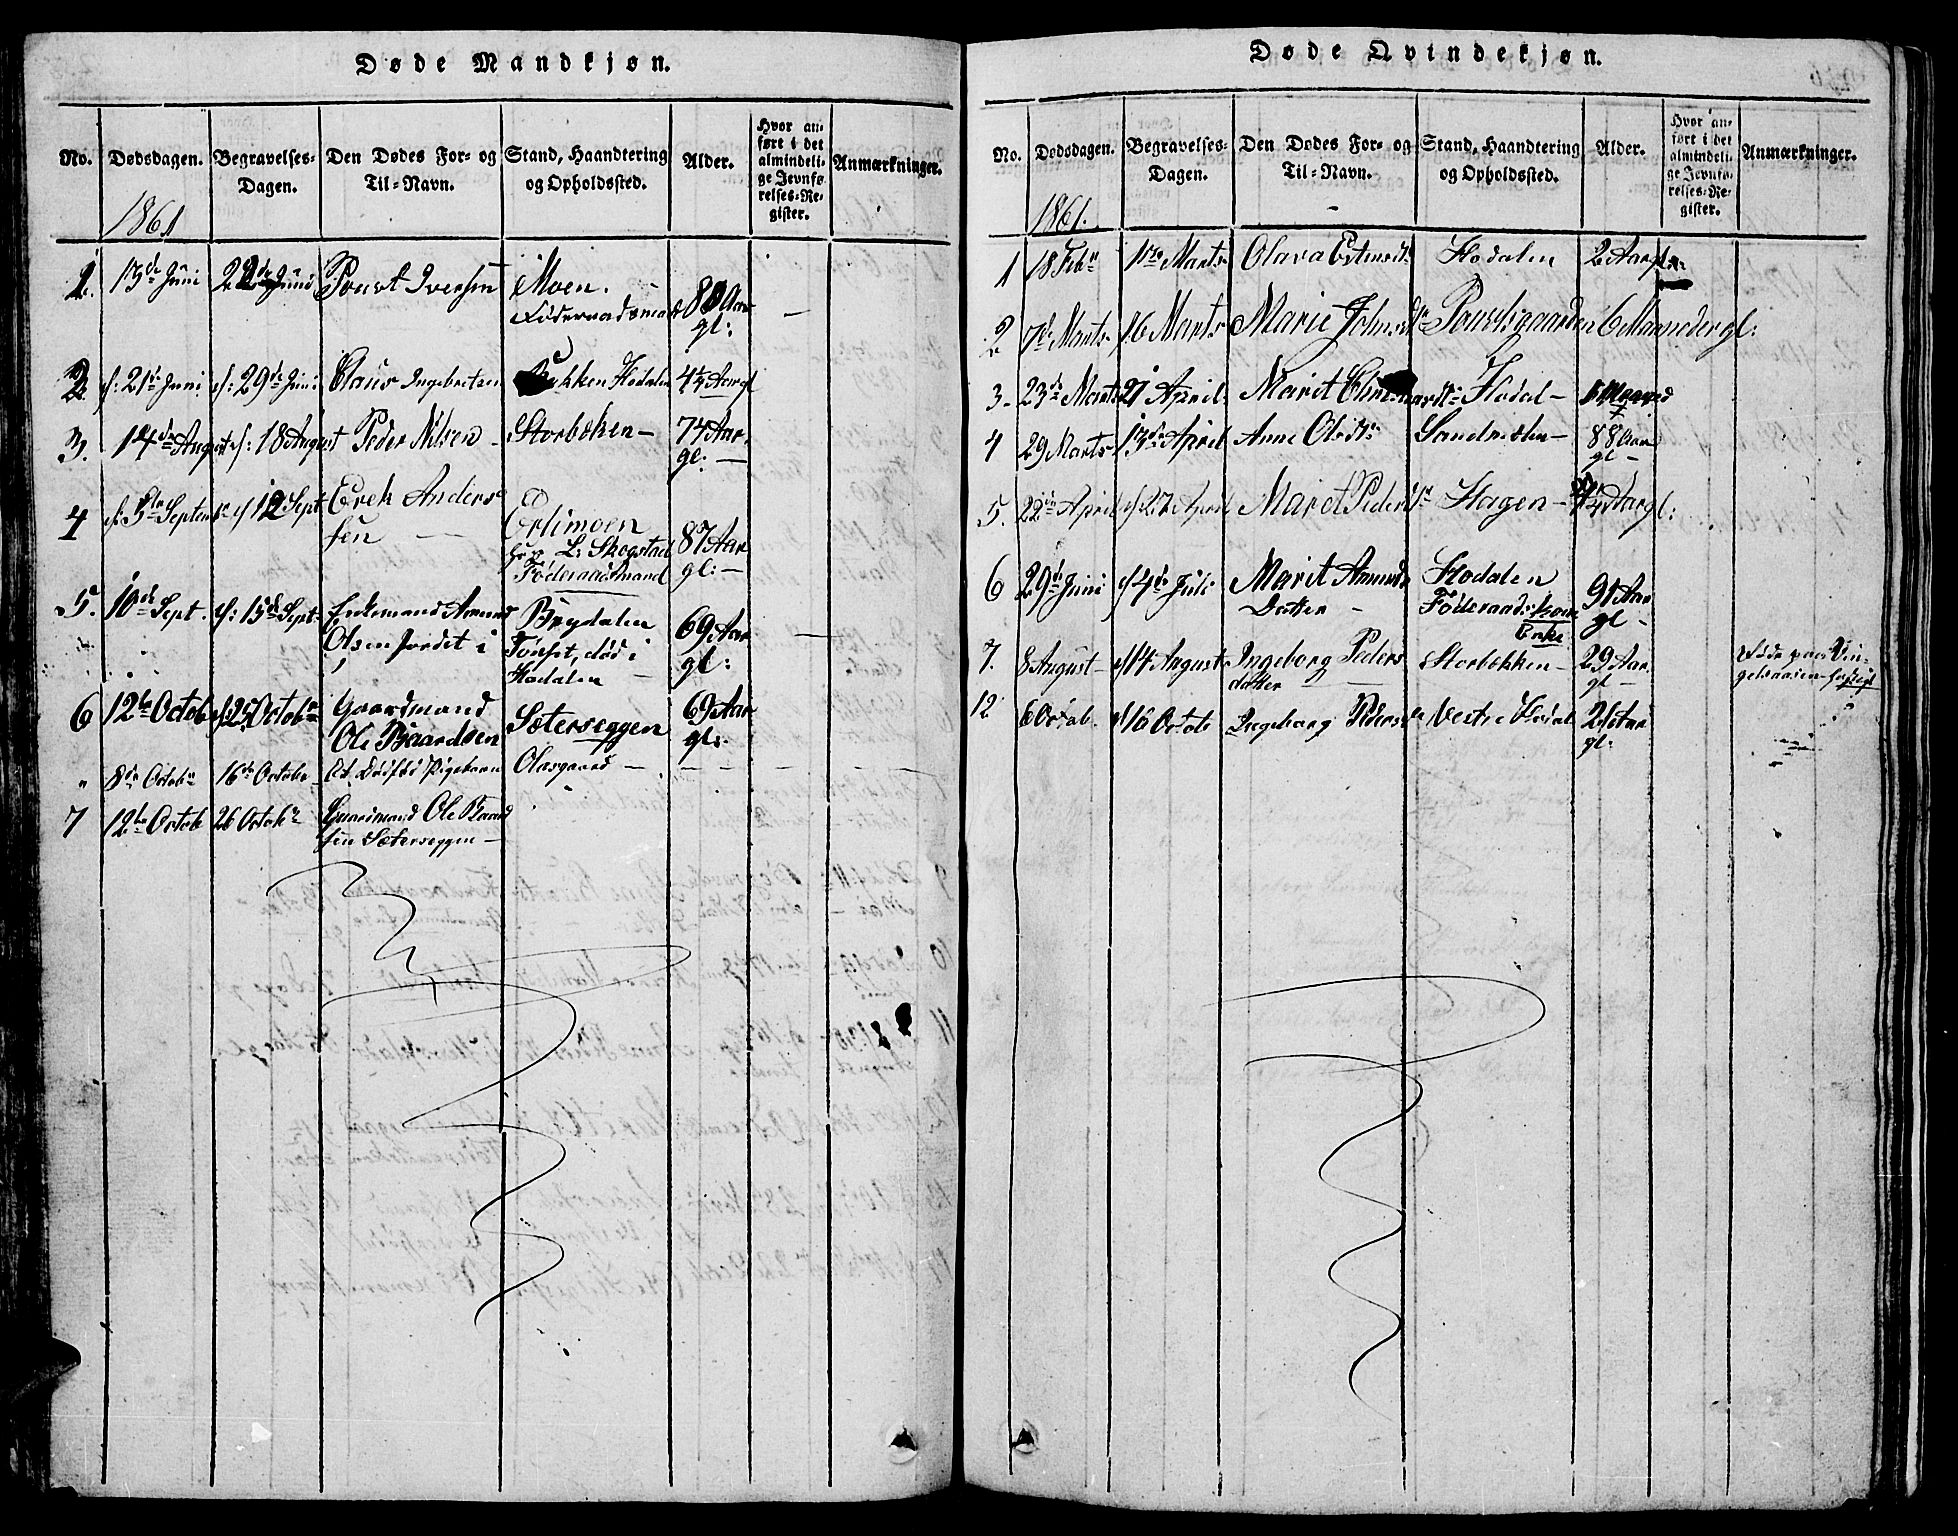 Døde Mandkjøn.
No. Dødsdagen. Begravelses-Dagen. Den Dødes For- og Til-Navn. Stand, Haandtering og Opholdssted. Alder. Hvor anført i det almindelige Jevnførelses-Register. Anmærkninger.
1861
1. 13de Juni 22de Juni Poust Iversen Moen. 80 Aar
Föderaadsmand gl:
2. d: 21de Juni d: 29de Juni Claus Ingebretsen Bekken Hodalen 44 Aar gl
3. 14de August d: 18 August Peder Nilsen Storbekken 74 Aar
gl:
4 d: 5te Septembr d 12 Sept Erek Anders
sen Erlimoen 87 Aar
L: Skogstad gl:
Föderaadsmand
5. 10de Sept. d: 15de Sept. Enkemand Amund Brydalen 69 Aar
Olsen Jordet i Tönset, död i gl:
Hodalen
6 12te Octob d: 25 Octobr Gaardmand Sæterseggen 69 Aar
Ole Baardsen gl:
" 8de Octobr 16de Octobr Et Dödfød Pigebarn Olasgaard
7 12te Octob 26 Octobr Gaardmand Ole Baard
sen Sæterseggen
Døde Qvindekjøn.
No. Dødsdagen. Begravelses-Dagen. Den Dødes For- og Til-Navn. Stand, Haandtering og Opholdssted. Alder. Hvor anført i det almindelige Jevnførelses-Register. Anmærkninger.
1861.
1 18 Febr 1ste Marts Olava Estensdtr Hodalen 2 Aar gl:
2 7de Marts 16 Marts Marie Johnsdtr Poustsgaarden 6 Maaneder gl:
3 23de Marts 21 April Marit Hodal
4 29 Marts 13de April Anne Olsdtr Sandnesten 88 Aar
gl
5. 22de April d 27 April Maret Pedersdtr Hagen 74 Aar gl:
6 29de Juni d 4de Juli Marit Amunds Hodalen 91 Aar
Datter Föderaadskone gl
Enke
7. 8 August d 14 August Ingeborg Peders Storbekken 29 Aar Föde paa Vin-
datter gl gelsaasen
12 6 Octob. d 16 Octob Ingeborg Pedersdtr Vestre Hodal 21 Aar
gl: